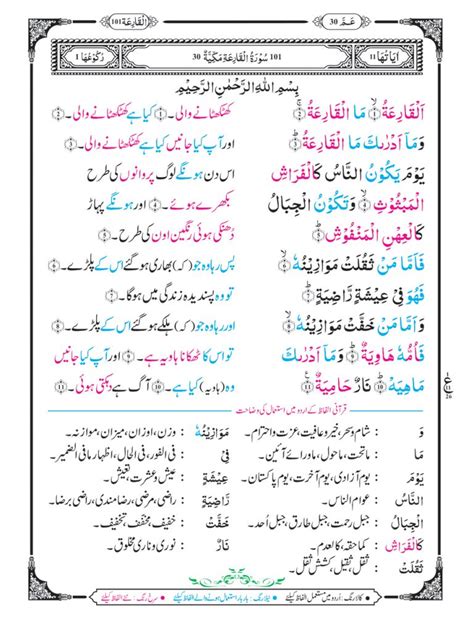 اَلْقَارِعَة 101
عَمَّ 30
رُكُوْعُهَا 1
101 سُوْرَةُ الْقَارِعَةِ مَكِّيَّةٌ 30
اٰيَاتُهَا 11
بِسْمِ اللّٰهِ الرَّحْمٰنِ الرَّحِيْمِ
اَلْقَارِعَةُ ۙ ﴿۱﴾ مَا الْقَارِعَةُ ۚ ﴿۲﴾ کھٹکھٹانے والی۔ ﴿۱﴾ کیا ہے کھٹکھٹانے والی۔ ﴿۲﴾
وَمَاۤ اَدْرٰىكَ مَا الْقَارِعَةُ ؕ ﴿۳﴾ اور آپ کیا جانیں کیا ہے کھٹکھٹانے والی۔ ﴿۳﴾
يَوْمَ يَكُوْنُ النَّاسُ كَالْفَرَاشِ اس دن ہونگے لوگ پروانوں کی طرح
الْمَبْثُوْثِ ۙ ﴿۴﴾ وَتَكُوْنُ الْجِبَالُ بکھرے ہوئے۔ ﴿۴﴾ اور ہونگے پہاڑ
كَالْعِهْنِ الْمَنْفُوْشِ ؕ ﴿۵﴾ دُھنکی ہوئی رنگین اون کی طرح۔ ﴿۵﴾
فَاَمَّا مَنْ ثَقُلَتْ مَوَازِيْنُهٗ ۙ ﴿۶﴾ پس رہا وہ جو (کہ) بھاری ہو گئے اس کے پلڑے۔ ﴿۶﴾
فَهُوَ فِيْ عِيْشَةٍ رَّاضِيَةٍ ؕ ﴿۷﴾ تو وہ پسندیدہ زندگی میں ہوگا۔ ﴿۷﴾
وَاَمَّا مَنْ خَفَّتْ مَوَازِيْنُهٗ ۙ ﴿۸﴾ اور رہا وہ جو (کہ) ہلکے ہو گئے اس کے پلڑے۔ ﴿۸﴾
فَاُمُّهٗ هَاوِيَةٌ ؕ ﴿۹﴾ وَمَاۤ اَدْرٰىكَ تو اس کا ٹھکانا ہاویہ ہے۔ ﴿۹﴾ اور آپ کیا جانیں
مَاهِيَهْ ؕ ﴿۱۰﴾ نَارٌ حَامِيَةٌ ﴿۱۱﴾ وہ (ہاویہ) کیا ہے۔ ﴿۱۰﴾ آگ ہے دہکتی ہوئی۔ ﴿۱۱﴾
قرآنی الفاظ کے اردو میں استعمال کی وضاحت
وَ : شام و سحر، خیر و عافیت، عزت و احترام۔ مَوَازِيْنُهٗ : وزن، اوزان، میزان، موازنہ۔
مَا : ماتحت، ماحول، ماورائے آئین۔ فِيْ : فی الفور، فی الحال، اظہار مافی الضمیر۔
يَوْمَ : یوم آزادی، یوم آخرت، یوم پاکستان۔ عِيْشَةٍ : عیش و عشرت، تعیش۔
النَّاسُ : عوام الناس۔ رَّاضِيَةٍ : راضی، مرضی، رضامندی، راضی برضا۔
الْجِبَالُ : جبل رحمت، جبل طارق، جبل اُحد۔ خَفَّتْ : خفیف، مخفف، تخفیف۔
كَالْفَرَاشِ : کما حقہ، کالعدم۔ نَارٌ : نوری و ناری مخلوق۔
ثَقُلَتْ : ثقل، ثقیل، کشش ثقل۔
کالا رنگ : اُردو میں مستعمل الفاظ کیلئے • نیلا رنگ : بار بار استعمال ہونے والے الفاظ کیلئے • سرخ رنگ : نئے الفاظ کیلئے